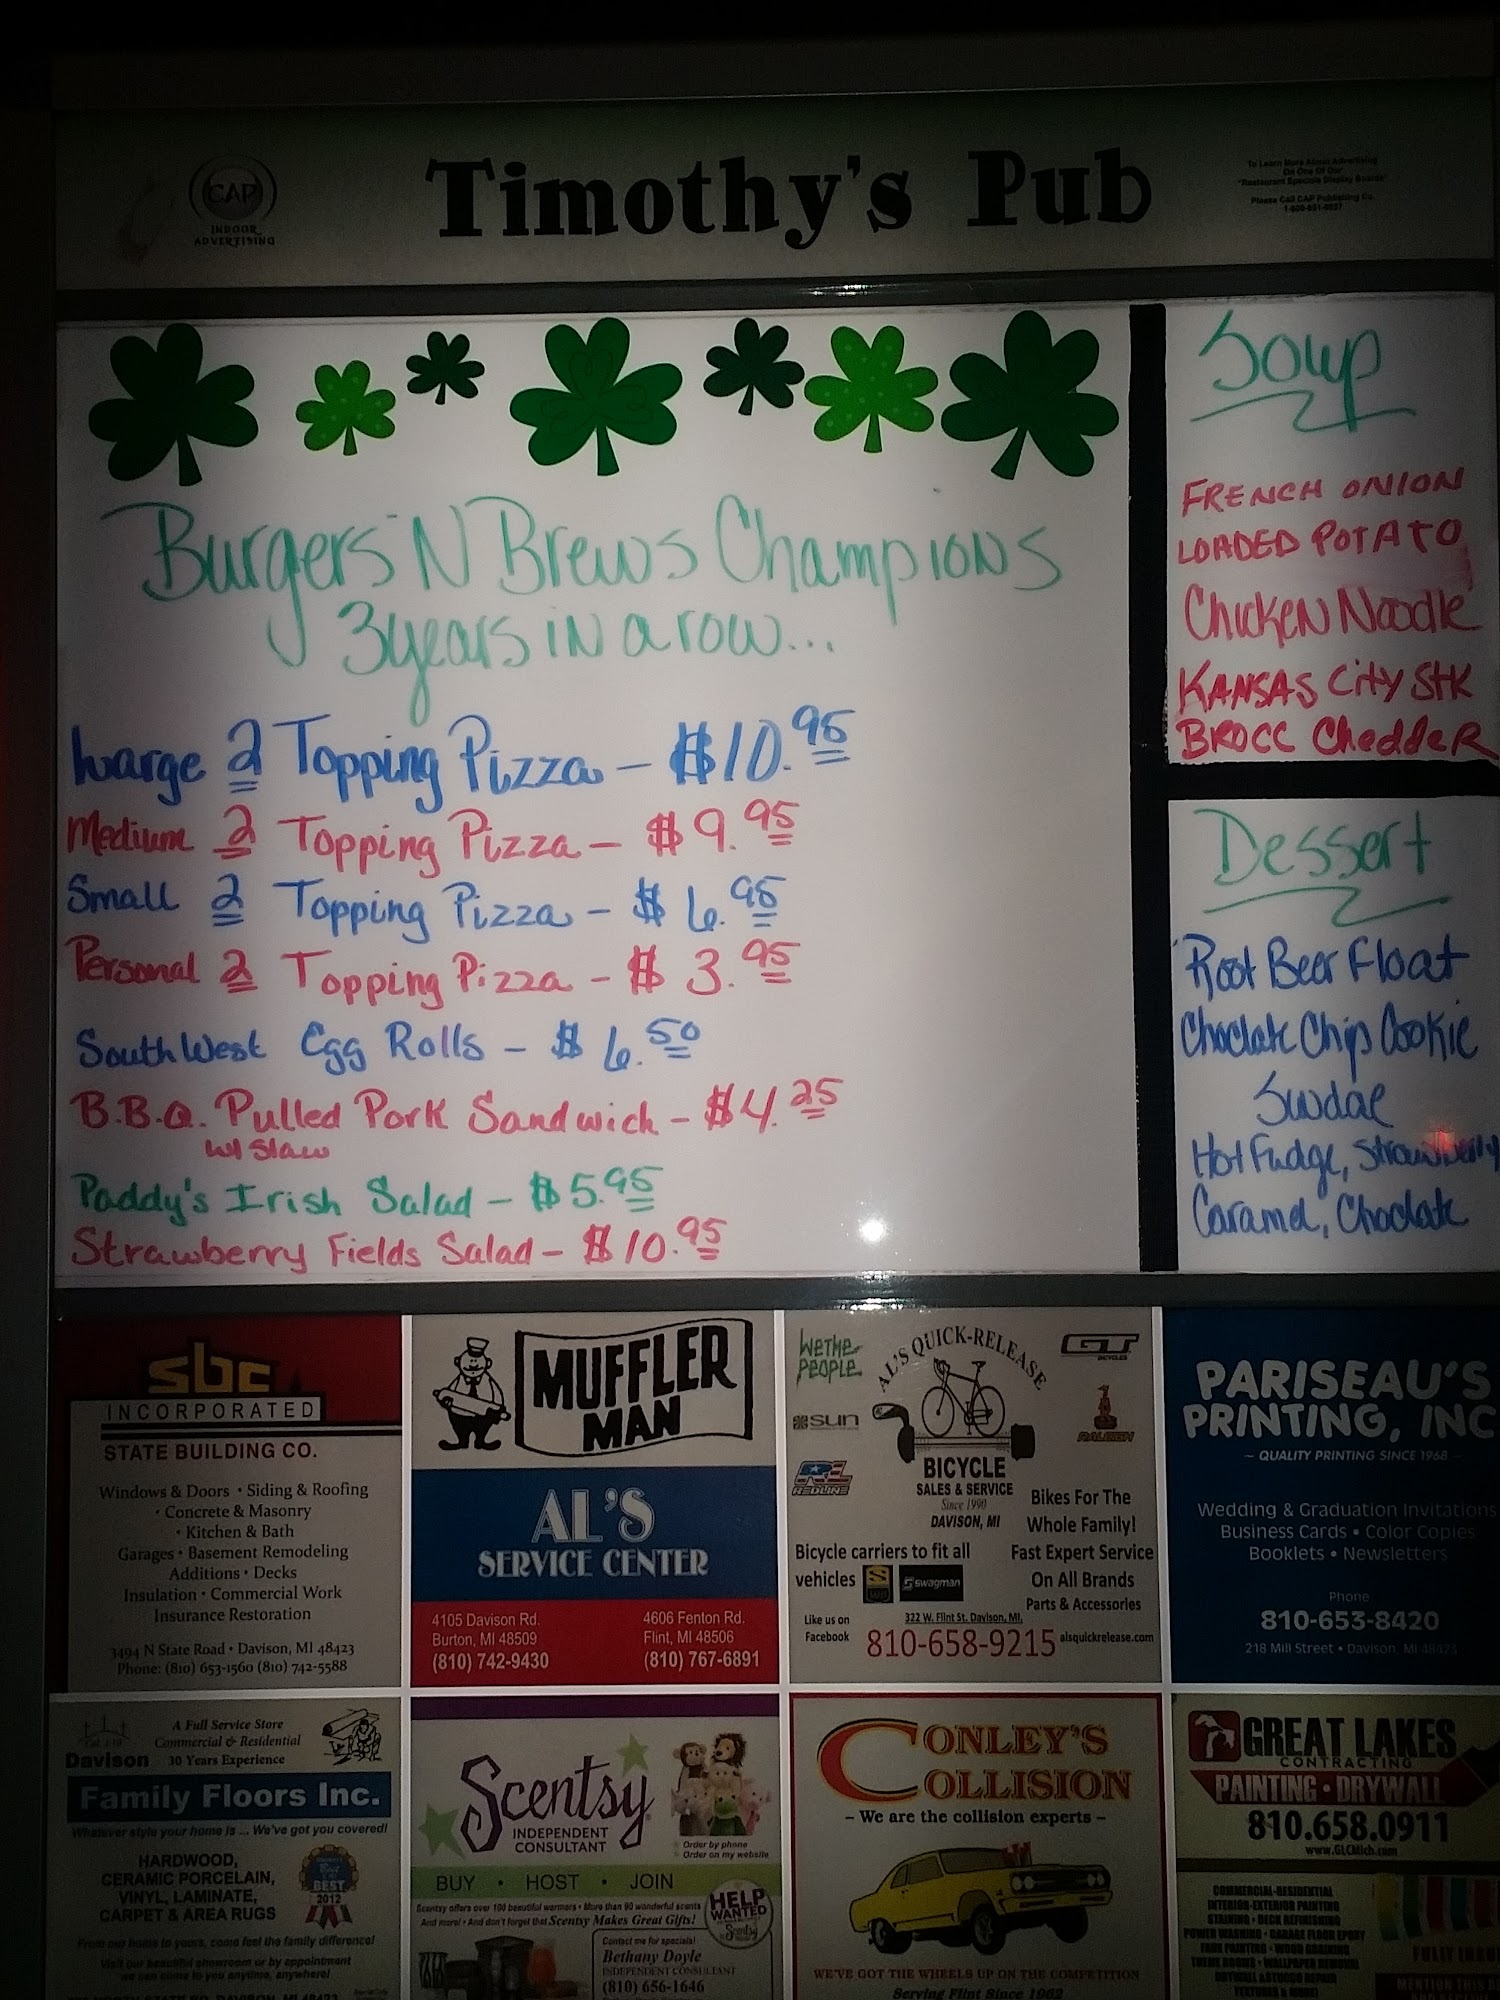 CAP
INDOOR
ADVERTISING
Timothy's Pub
To Learn More About Advertising
On One Of Our
"Restaurant Specials Display Boards"
Please Call CAP Publishing Co.
Burgers 'N Brews Champions
3 years in a row...
Large 2 Topping Pizza - $10.95
Medium 2 Topping Pizza - $9.95
Small 2 Topping Pizza - $6.95
Personal 2 Topping Pizza - $3.95
South West Egg Rolls - $6.50
B.B.Q. Pulled Pork Sandwich - $4.25
w/ Slaw
Paddy's Irish Salad - $5.95
Strawberry Fields Salad - $10.95
Soup
FRENCH ONION
LOADED POTATO
Chicken Noodle
KANSAS City Stk
BROCC CheddeR
Dessert
Root Beer Float
Choclate Chip Cookie
Sundae
Hot Fudge, Strawberry
Caramel, Choclate
sbc
INCORPORATED
STATE BUILDING CO.
Windows & Doors • Siding & Roofing
• Concrete & Masonry
• Kitchen & Bath
Garages • Basement Remodeling
Additions • Decks
Insulation • Commercial Work
Insurance Restoration
3494 N State Road • Davison, MI 48423
Phone: (810) 653-1560 (810) 742-5588
MUFFLER
MAN
AL'S
SERVICE CENTER
4105 Davison Rd.
Burton, MI 48509
(810) 742-9430
4606 Fenton Rd.
Flint, MI 48506
(810) 767-6891
WETHE
PEOPLE
AL'S QUICK-RELEASE
GT
BICYCLES
sun
RALEIGH
RL
REDLINE
BICYCLE
SALES & SERVICE
Since 1990
DAVISON, MI
Bikes For The
Whole Family!
Bicycle carriers to fit all
vehicles
swagman
Fast Expert Service
On All Brands
Parts & Accessories
Like us on
Facebook
322 W. Flint St. Davison, MI,
810-658-9215
alsquickrelease.com
PARISEAU'S
PRINTING, INC
~ QUALITY PRINTING SINCE 1968 ~
Wedding & Graduation Invitations
Business Cards • Color Copies
Booklets • Newsletters
Phone
810-653-8420
218 Mill Street • Davison, MI 48423
A Full Service Store
Commercial & Residential
30 Years Experience
Davison
Family Floors Inc.
Whatever style your home is ... We've got you covered!
HARDWOOD,
CERAMIC PORCELAIN,
VINYL, LAMINATE,
CARPET & AREA RUGS
BEST
2012
From our home to yours, come feel the family difference!
Visit our beautiful showroom or by appointment
we can come to you anytime, anywhere!
Scentsy
INDEPENDENT
CONSULTANT
Order by phone
Order on my website
BUY • HOST • JOIN
Scentsy offers over 100 beautiful warmers • More than 90 wonderful scents
And more! • And don't forget that Scentsy Makes Great Gifts!
HELP
WANTED
Contact me for specials!
Bethany Doyle
INDEPENDENT CONSULTANT
(810) 656-1646
CONLEY'S
COLLISION
- We are the collision experts -
WE'VE GOT THE WHEELS UP ON THE COMPETITION
Serving Flint Since 1962
GREAT LAKES
CONTRACTING
PAINTING • DRYWALL
810.658.0911
www.GLCMich.com
COMMERCIAL-RESIDENTIAL
INTERIOR-EXTERIOR PAINTING
STAINING - DECK REFINISHING
POWER WASHING - GARAGE FLOOR EPOXY
FAUX PAINTING - WOOD GRAINING
THEME ROOMS - WALLPAPER REMOVAL
MENTION THIS